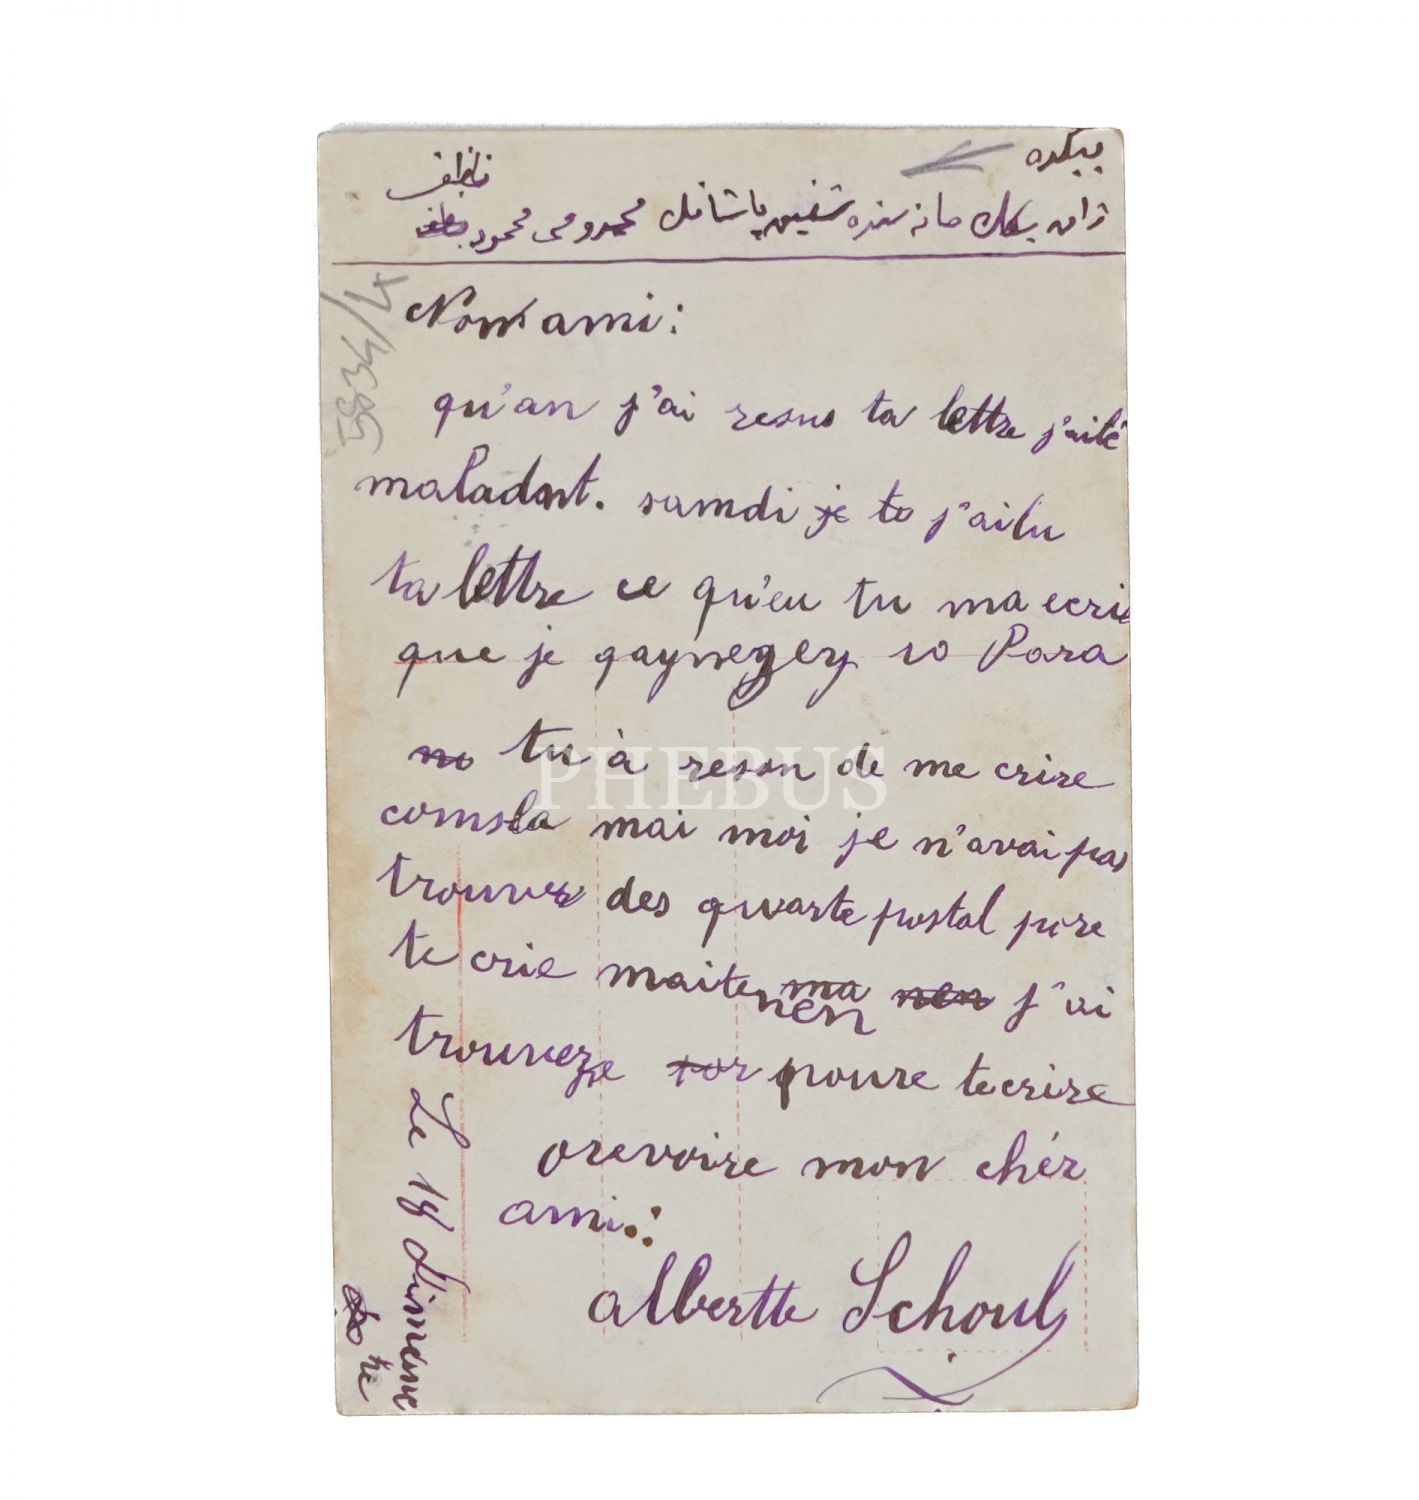 ببكده
ناظف
ژاندرمه خانه سنده شفيق پاشانك محمود
5834/4
Mom ami:
qu'an j'ai resus ta lettre j'aité
maladnt. samdi je te j'ailu
ta lettre ce qu'eu tu ma ecrie
que je gaynegey 10 Para
no tu à reson de me crire
comsla mai moi je n'avai pas
trouver des quarte postal pore
te crie maite ma nen j'ai
nen
trouveze por poure tecrire
orevoire mon chér
ami.:
albertte Schoul
Le 18 Dimeme
tre
PHEBUS